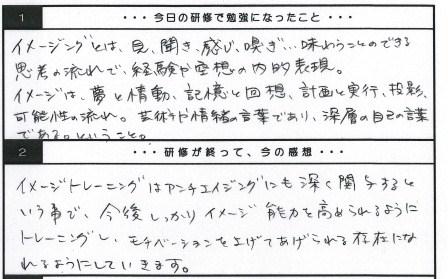 1 ・・・今日の研修で勉強になったこと・・・
イメージングとは、見、聞き、感じ、嗅ぎ…味わうことのできる
思考の流れで、経験や空想の内的表現。
イメージは、夢と情動、記憶と回想、計画と実行、投影、
可能性の流れ。芸術や情緒の言葉であり、深層の自己の言葉
である。ということ。
2 ・・・研修が終って、今の感想・・・
イメージトレーニングはアンチエイジングにも深く関与すると
いう事で、今後しっかりイメージ能力を高められるように
トレーニングし、モチベーションを上げてあげられる存在にな
れるようにしていきます。